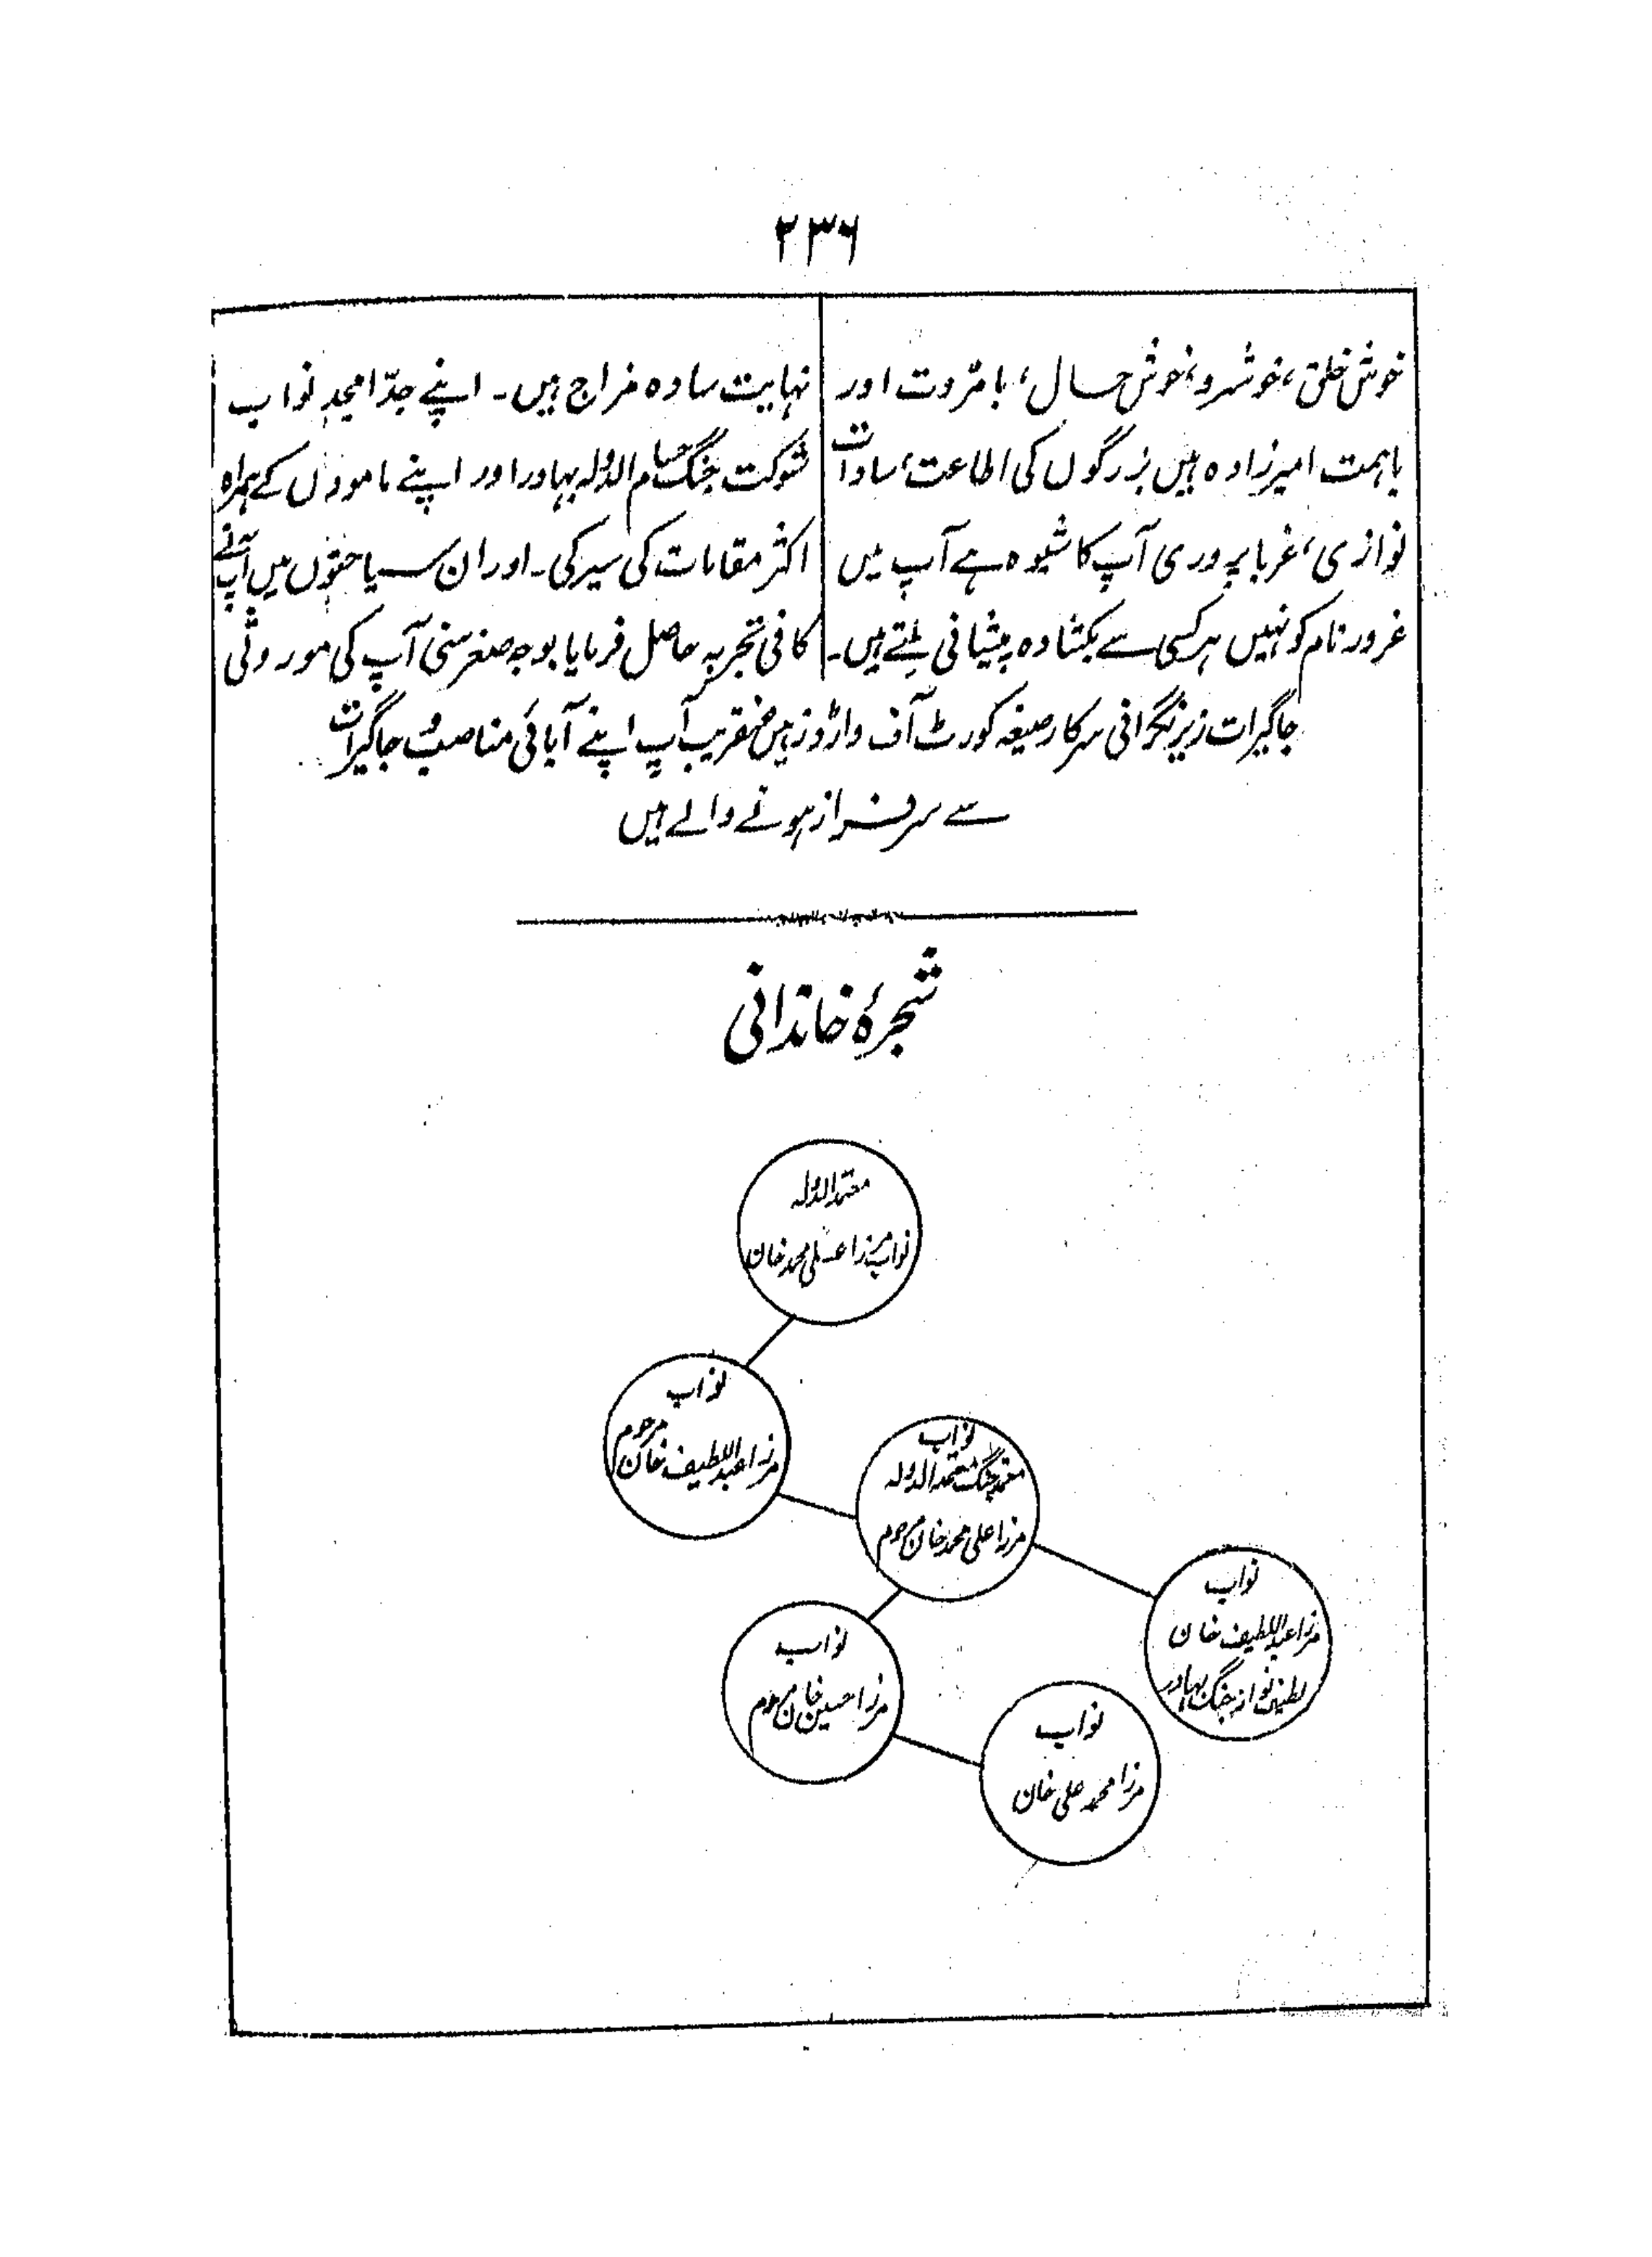 ۲۳۶
خوش خلق، خوشرو، خوش حال، بامروت اور
باہمت امیرزادہ ہیں بزرگوں کی اطاعت، سادات
نوازی، غربا پروری آپ کا شیوہ ہے آپ میں
غرور نام کو نہیں ہر کسی سے بکشادہ پیشانی ملتے ہیں۔
نہایت سادہ مزاج ہیں۔ اپنے جدّ امجد نواب
شوکت جنگ حسام الدولہ بہادر اور اپنے ماموؤں کے ہمراہ
اکثر مقامات کی سیر کی۔ اور ان سیاحتوں میں آپنے
کافی تجربہ حاصل فرمایا بوجہ صغر سنی آپ کی موروثی
جاگیرات زیر نگرانی سرکار صیغہ کورٹ آف وارڈز ہیں عنقریب آپ اپنے آبائی مناصب و جاگیرات
سے سرفراز ہونے والے ہیں
شجرۂ خاندانی
معتمد الدولہ
نواب میرزا علی محمد خان
نواب
مرزا عبداللطیف خان مرحوم
نواب
معتمد جنگ معتمد الدولہ
مرزا علی محمد خان مرحوم
نواب
مرزا عبداللطیف خان
لطیف نواز جنگ بہادر
نواب
مرزا حسین خان مرحوم
نواب
مرزا محمد علی خان